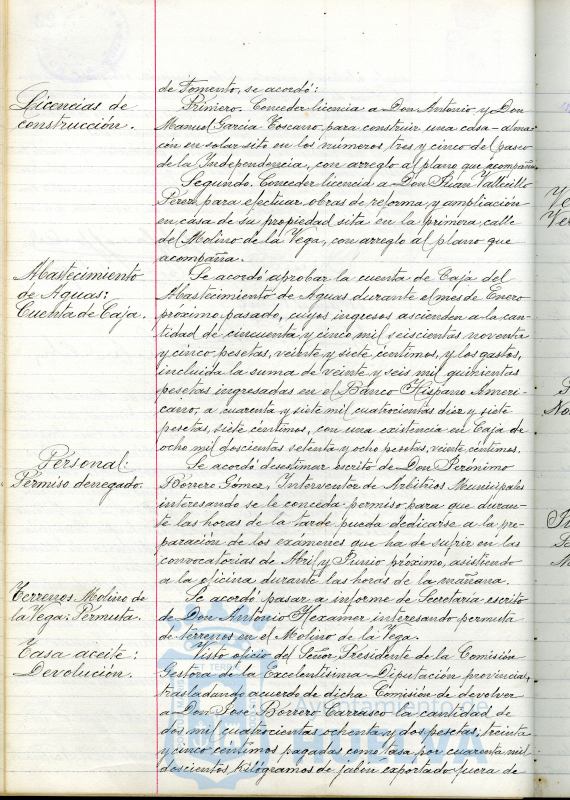 de Fomento, se acordó:
Licencias de
construcción.
Primero. Conceder licencia a Don Antonio y Don
Manuel García Toscano, para construir una casa-alma-
cén en solar sito en los números tres y cinco del paseo
de la Independencia, con arreglo al plano que acompaña.
Segundo. Conceder licencia a Don Juan Vallecillo
Pérez, para efectuar obras de reforma y ampliación
en casa de su propiedad sita en la primera calle
del Molino de la Vega, con arreglo al plano que
acompaña.
Abastecimiento
de Aguas:
Cuenta de Caja.
Se acordó aprobar la cuenta de Caja del
Abastecimiento de Aguas durante el mes de Enero
próximo pasado, cuyos ingresos ascienden a la can-
tidad de cincuenta y cinco mil seiscientas noventa
y cinco pesetas, veinte y siete céntimos, y los gastos,
incluida la suma de veinte y seis mil quinientas
pesetas ingresadas en el Banco Hispano Ameri-
cano, a cuarenta y siete mil cuatrocientas diez y siete
pesetas, siete céntimos, con una existencia en Caja de
ocho mil doscientas setenta y ocho pesetas, veinte céntimos.
Personal:
Permiso denegado.
Se acordó desestimar escrito de Don Jerónimo
Borrero Gómez, Interventor de Arbitrios Municipales
interesando se le conceda permiso para que duran-
te las horas de la tarde pueda dedicarse a la pre-
paración de los exámenes que ha de sufrir en las
convocatorias de Abril y Junio próximo, asistiendo
a la oficina durante las horas de la mañana.
Terrenos Molino de
la Vega: Permuta.
Se acordó pasar a informe de Secretaría escrito
de Don Antonio Hexamer interesando permuta
de terrenos en el Molino de la Vega.
Tasa aceite:
Devolución.
Visto oficio del Señor Presidente de la Comisión
Gestora de la Excelentísima Diputación provincial,
trasladando acuerdo de dicha Comisión de devolver
a Don José Borrero Carrasco la cantidad de
dos mil cuatrocientas ochenta y dos pesetas, treinta
y cinco céntimos pagadas como tasa por cuarenta mil
doscientos kilógramos de jabón exportado fuera de
Ayuntamiento de